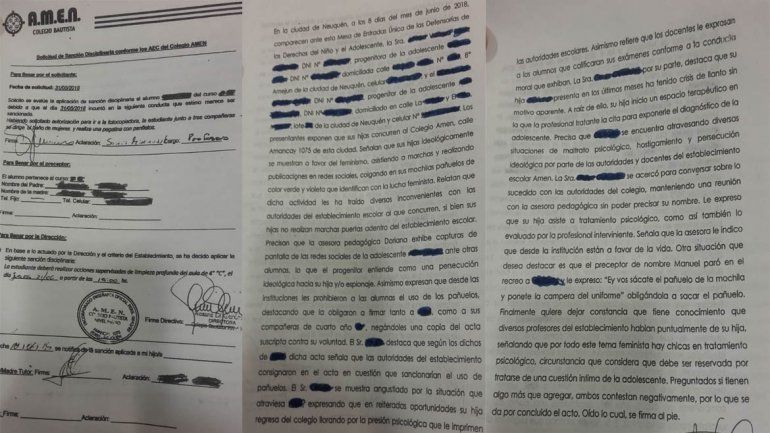 A.M.E.N.
COLEGIO BAUTISTA
Solicitud de Sanción Disciplinaria conforme los AEC del Colegio AMEN
Para llenar por el solicitante:
Fecha de solicitud: 31/05/2018
Solicito se evalúe la aplicación de sanción disciplinaria al alumno del curso
debido a que el día 31/05/2018 incurrió en la siguiente conducta que estimo merece ser
sancionada:
Habiendo solicitado autorización para ir a la fotocopiadora, la estudiante junto a tras compañeras
se dirige al baño de mujeres y realiza una pegatina con panfletos.
Firma Aclaración Cargo: Profesora
Para llenar por el preceptor:
El alumno pertenece al curso
Nombre del Padre:
Nombre de la madre
Tel. Fijo: Tel. Celular:
Firma: Aclaración:
Para llenar por la Dirección:
En base a lo actuado por la Dirección y el criterio del Establecimiento, se ha decidido aplicar la
siguiente sanción disciplinaria:
La estudiante deberá realizar acciones supervisadas de limpieza profunda del aula de 4° "C", el día
a partir de las
A. M. E. N.
Firma Directivo:
DIRECTORA
se notifica de la sanción aplicada a mi hijo/a
Madre Tutor: Firma: Aclaración:
Firma: Aclaración:
En la ciudad de Neuquén, a los 8 días del mes de junio de 2018,
comparecen ante esta Mesa de Entradas Única de las Defensorías de
los Derechos del Niño y el Adolescente, la Sra.
DNI N° progenitora de la adolescente
DNI N° domiciliada calle N° 8°
Amejun de la ciudad de Neuquén, celular y el
DNI N° progenitor de la adolescente
DNI N° domiciliado en calle La y
lote de la ciudad de Neuquén, celular N° Los
presentantes exponen que sus hijas concurren al Colegio Amen, calle
Amancay 1075 de esta ciudad. Señalan que sus hijas ideológicamente
se muestran a favor del feminismo, asistiendo a marchas y realizando
publicaciones en redes sociales, colgando en sus mochilas pañuelos de
color verde y violeta que identifican con la lucha feminista. Relatan que
dicha actividad les ha traído diversos inconvenientes con las
autoridades del establecimiento escolar al que concurren, si bien sus
hijas no realizan marchas puertas adentro del establecimiento escolar.
Precisan que la asesora pedagógica Dariana exhibe capturas de
pantalla de las redes sociales de la adolescente ante otras
alumnas, lo que el progenitor entiende como una persecución
ideológica hacia su hija y/o espionaje. Asimismo expresan que desde las
instituciones les prohibieron a las alumnas el uso de los pañuelos,
destacando que la obligaron a firmar tanto a como a sus
compañeras de cuarto año negándoles una copia del acta
suscripta contra su voluntad. El Sr. destaca que según los dichos
de dicha acta señala que las autoridades del establecimiento
consignaron en el acta en cuestión que sancionarían el uso de
pañuelos. El Sr. se muestra angustiado por la situación que
atraviesa expresando que en reiteradas oportunidades su hija
regresa del colegio llorando por la presión psicológica que le imprimen
las autoridades escolares. Asimismo refiere que los docentes le expresan
a los alumnos que calificaran sus exámenes conforme a la conducta
moral que exhiban. La Sra. por su parte, destaca que su
hija presenta en los últimos meses ha tenido crisis de llanto sin
motivo aparente. A raíz de ello, su hija inicio un espacio terapéutico en
lo que la profesional tratante la cita para exponerle el diagnóstico de la
adolescente. Precisa que se encuentra atravesando diversas
situaciones de maltrato psicológico, hostigamiento y persecución
ideológica por parte de las autoridades y docentes del establecimiento
escolar Amen. La Sra. se acercó para conversar sobre lo
sucedido con las autoridades del colegio, manteniendo una reunión
con la asesora pedagógica sin poder precisar su nombre. Le expreso
que su hija asiste a tratamiento psicológico, como así también lo
evaluado por la profesional interviniente. Señala que la asesora le indico
que desde la institución están a favor de la vida. Otra situación que
desea destacar es que el preceptor de nombre Manuel paró en el
recreo a le expreso: "Ey vos sácate el pañuelo de la mochila
y ponete la campera del uniforme" obligándola a sacar el pañuelo.
Finalmente quiere dejar constancia que tiene conocimiento que
diversos profesores del establecimiento hablan puntualmente de su hija,
señalando que por todo este tema feminista hay chicas en tratamiento
psicológico, circunstancia que considera que debe ser reservada por
tratarse de una cuestión íntima de la adolescente. Preguntados si tienen
algo mas que agregar, ambos contestan negativamente, por lo que se
da por concluido el acto. Oído lo cual, se firma al pie.